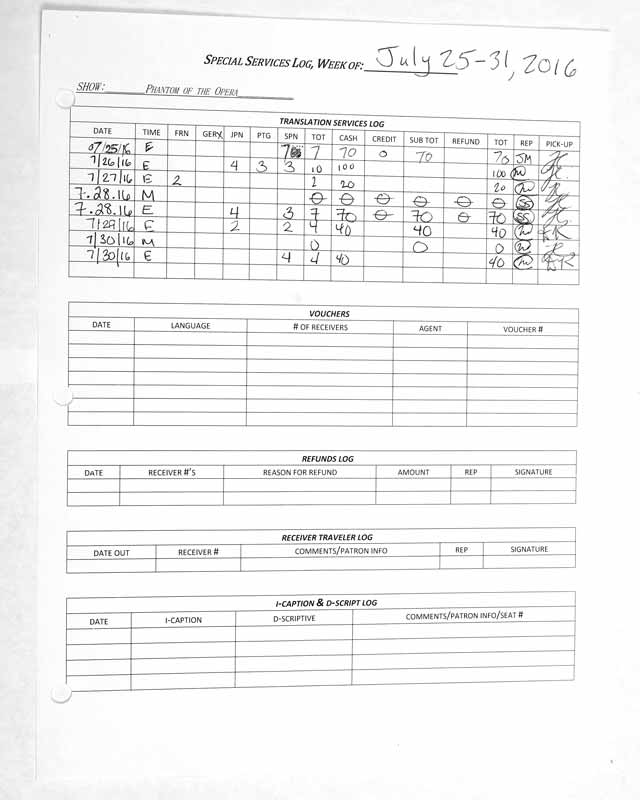 SPECIAL SERVICES LOG, WEEK OF: July 25-31, 2016
SHOW: PHANTOM OF THE OPERA
TRANSLATION SERVICES LOG
DATE TIME FRN GERX JPN PTG SPN TOT CASH CREDIT SUB TOT REFUND TOT REP PICK-UP
07/25/16 E 7 7 70 0 70 70 JM
7/26/16 E 4 3 3 10 100 100
7/27/16 E 2 2 20 20
7.28.16 M 0 0 0 0 0 0 SS
7.28.16 E 4 3 7 70 0 70 0 70 SS
7/29/16 E 2 2 4 40 40 40
7/30/16 M 0 0 0
7/30/16 E 4 4 40 40
VOUCHERS
DATE LANGUAGE # OF RECEIVERS AGENT VOUCHER #
REFUNDS LOG
DATE RECEIVER #'S REASON FOR REFUND AMOUNT REP SIGNATURE
RECEIVER TRAVELER LOG
DATE OUT RECEIVER # COMMENTS/PATRON INFO REP SIGNATURE
I-CAPTION & D-SCRIPT LOG
DATE I-CAPTION D-SCRIPTIVE COMMENTS/PATRON INFO/SEAT #